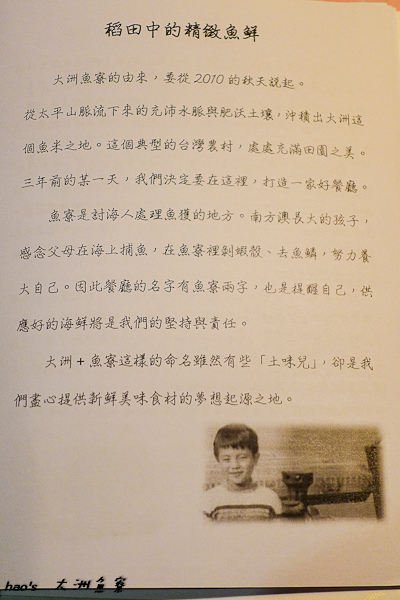 稻田中的精緻魚鮮
大洲魚寮的由來，要從2010的秋天說起。
從太平山脈流下來的充沛水脈與肥沃土壤，沖積出大洲這
個魚米之地。這個典型的台灣農村，處處充滿田園之美。
三年前的某一天，我們決定要在這裡，打造一家好餐廳。
魚寮是討海人處理魚獲的地方。南方澳長大的孩子，
感念父母在海上捕魚，在魚寮裡剝蝦殼、去魚鱗，努力養
大自己。因此餐廳的名字有魚寮兩字，也是提醒自己，供
應好的海鮮將是我們的堅持與責任。
大洲＋魚寮這樣的命名雖然有些「土味兒」，卻是我
們盡心提供新鮮美味食材的夢想起源之地。
hao's 大洲魚寮